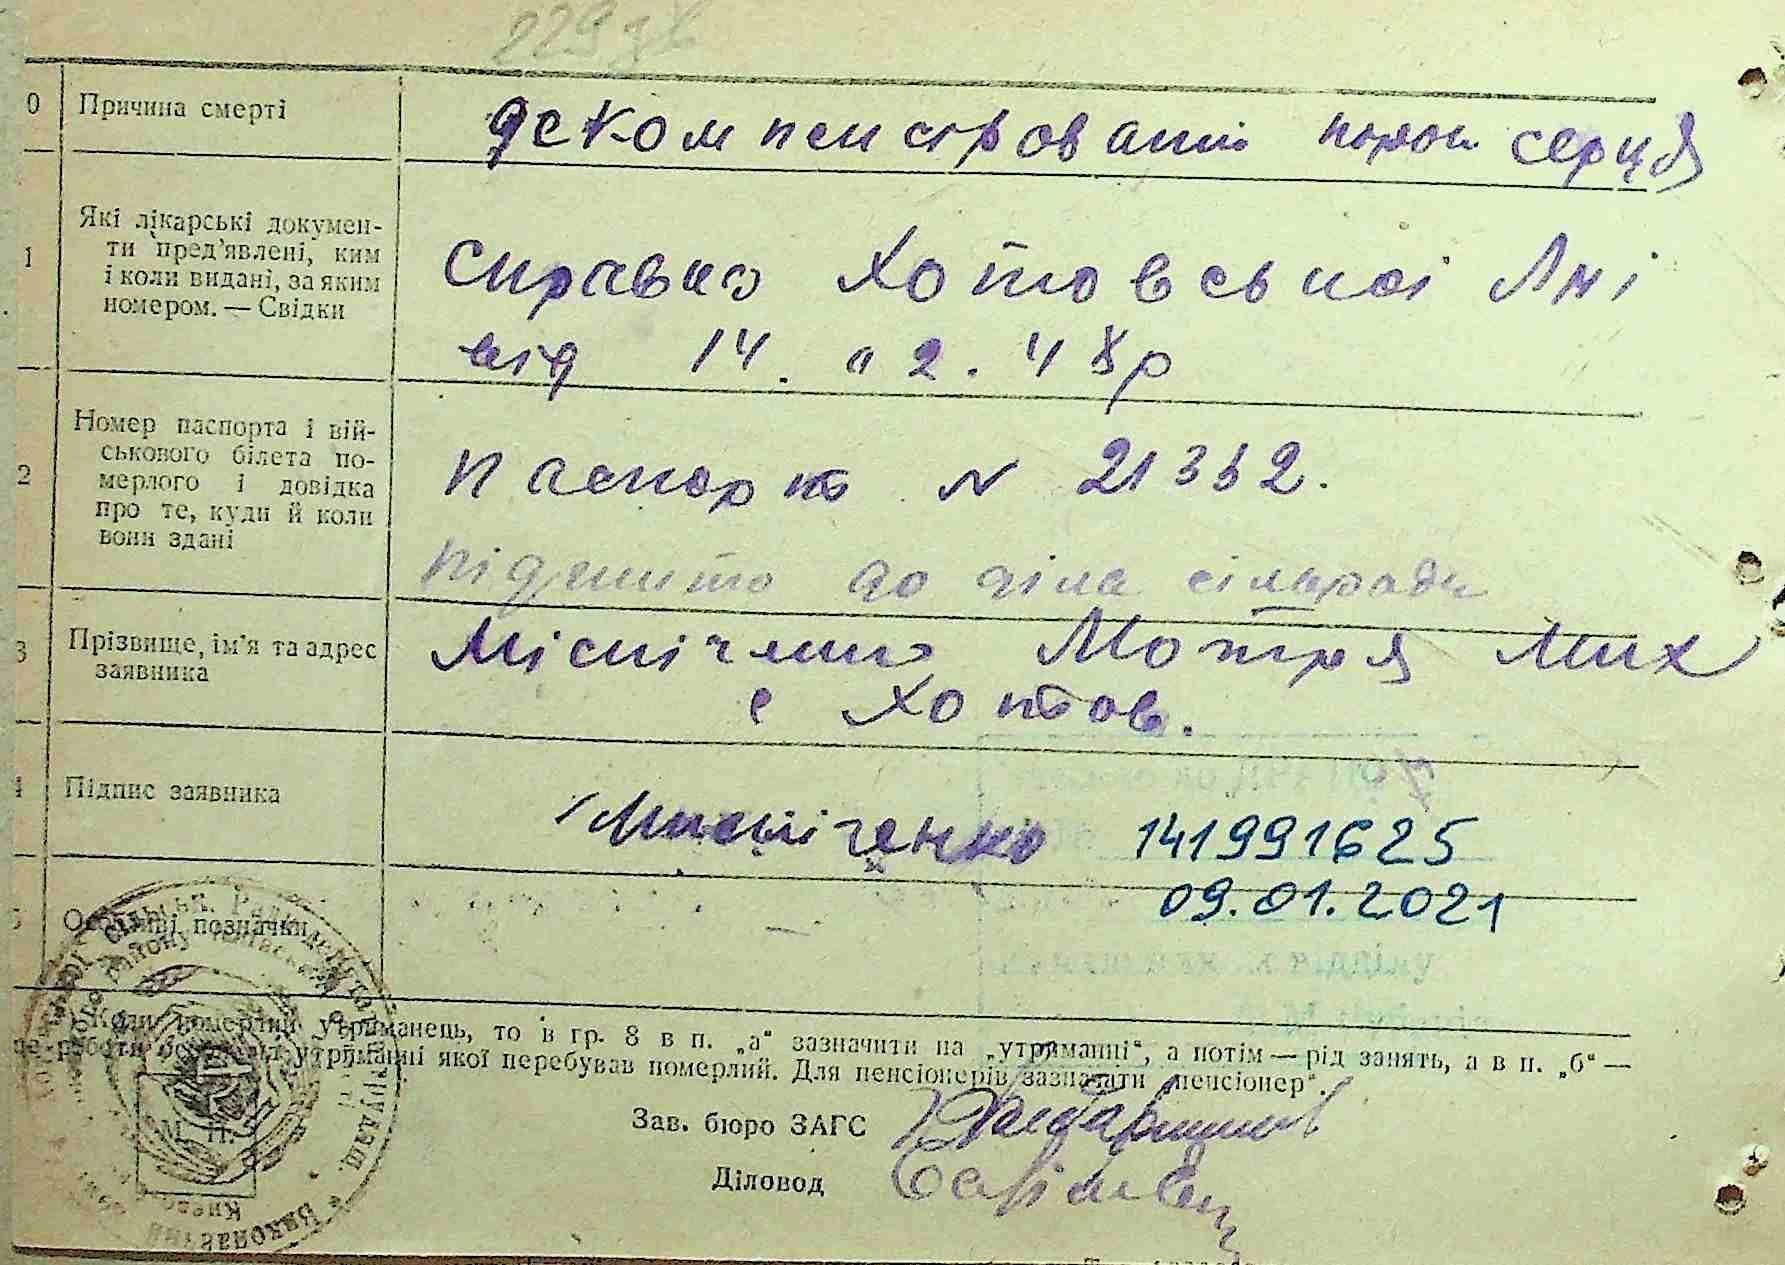 0 Причина смерті
декомпенсірований порок серця
1 Які лікарські докумен-
ти пред'явлені, ким
і коли видані, за яким
номером. — Свідки
Справка Хотовської Лікл
від 14. 02. 48р
2 Номер паспорта і вій-
ськового білета по-
мерлого і довідка
про те, куди й коли
вони здані
паспорт N 21332.
підшито до діла сільради
3 Прізвище, ім'я та адрес
заявника
Мотря Мих
с Хотов.
Підпис заявника
141991625
09.01.2021
Особливі позначки
Коли померлий утриманець, то в гр. 8 в п. „а“ зазначити на „утриманні“, а потім — рід занять, а в п. „б“ —
утриманні якої перебував померлий. Для пенсіонерів зазначати „пенсіонер“.
Зав. бюро ЗАГС
Діловод
М. П.